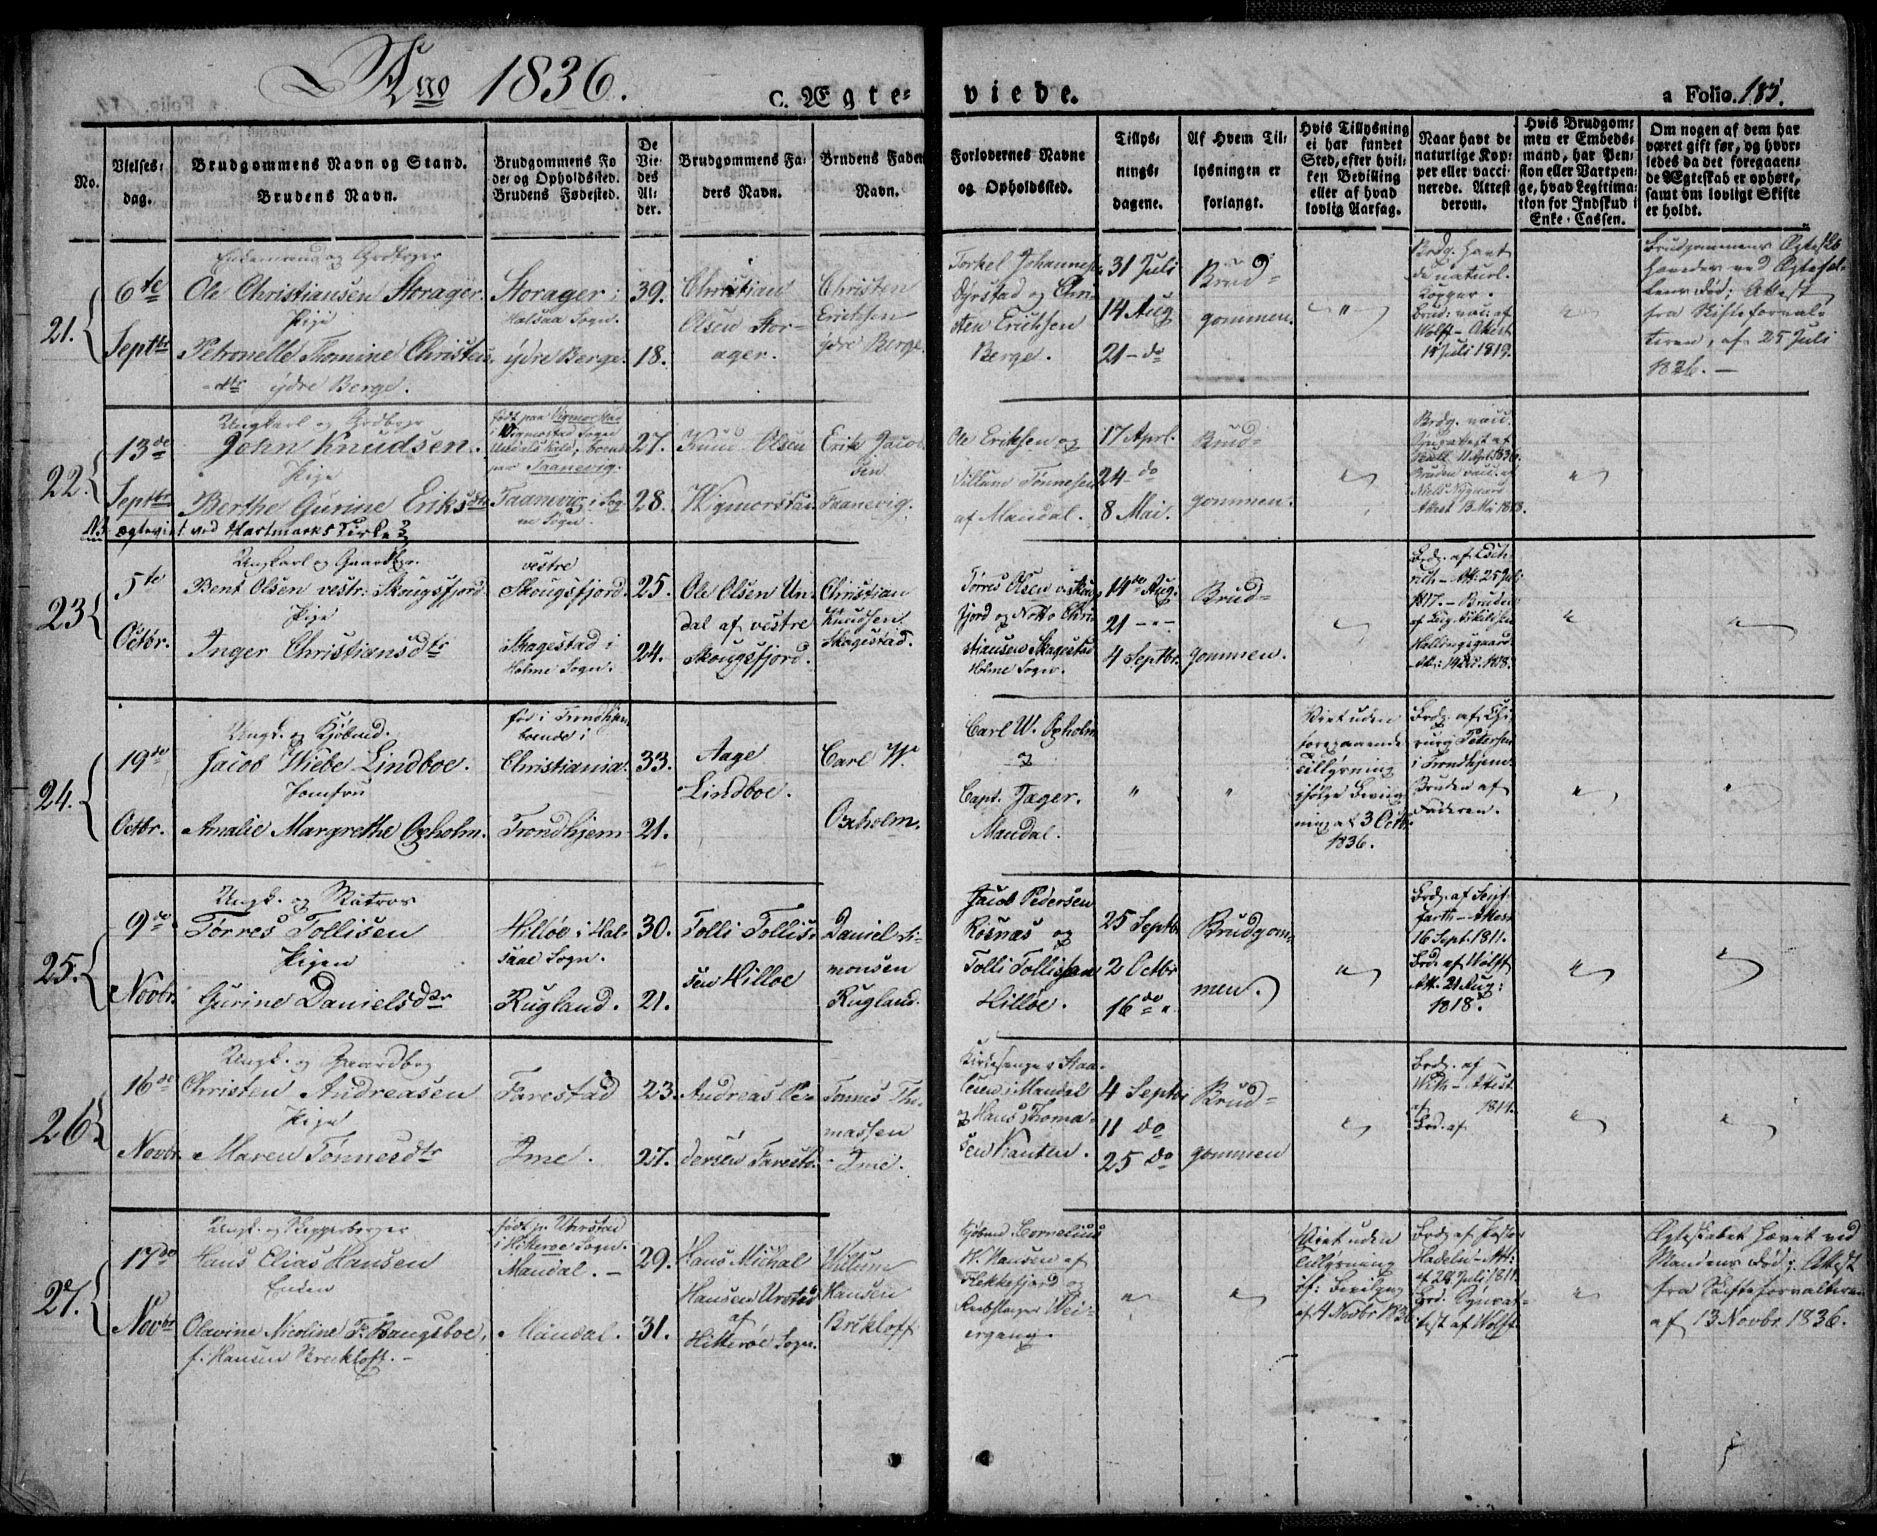 Ano 1836.
C. Ægte-
viede.
a Folio. 185.
No.
Vielses-
dag.
Brudgommens Navn og Stand.
Brudens Navn.
Brudgommens Fø
de- og Opholdssted.
Brudens Fødested.
De
Vie-
des
Al-
der.
Brudgommens Fa-
ders Navn.
Brudens Faders
Navn.
Forlovernes Navne
og Opholdssted.
Tillys-
nings-
dagene.
Af Hvem Til-
lysningen er
forlangt.
Hvis Tillysning
ei har fundet
Sted, efter hvil-
ken Bevilling
eller af hvad
lovlig Aarsag.
Naar havt de
naturlige Kop-
per eller vacci-
nerede. Attest
derom.
Hvis Brudgom-
men er Embeds-
mand, har Pen-
sion eller Vartpen-
ge, hvad Legitima-
tion for Indskud i
Enke-Cassen.
Om nogen af dem har
været gift før, og hvor-
ledes da det foregaaen-
de Ægteskab er ophørt,
samt om lovligt Skifte
er holdt.
21.
6te
Septbr
Enkemand og Grdbrger
Ole Christiansen Storager.
Pige
Petronelle Thomine Christens
dtr ydre Berge.
Storager i
Halsaa Sogn.
ydre Berge.
39.
18.
Christian
Olsen Stor-
ager.
Christen
Eriksen
ydre Berge.
Torkel Johannesen
Dyrstad og Chri-
sten Eriksen
Berge.
31 Juli
14 Aug
21 - do
Brud-
gommen.
"
Brdg. havt
de naturl.
Kopper.
Brud: vac: af
Wolff - Attest
1 Juli 1819.
"
Brudgommens Ægteskab
hævedes ved Ægtefæl-
lens Død; Attest
fra Skifteforval-
teren, af 25 Juli
1836. -
22.
13de
Septbr
Ungkarl og Grdbrger
John Knudsen.
Pige
Berthe Gurine Eriksdtr
NB. ægteviet ved Hartmarks Kirke
født paa Vigmorstad
i Vigmostad Sogn
Undals Kald, boende
paa Taanevig.
Taanevig i Sog
ne Sogn.
27.
28.
Knud Olsen
Wigmorstad
Erik Jacob
sen
Taanevig.
Ole Eriksen og
Villum Tønnesen
af Mandal.
17 Aprl.
24 - do
8 Mai.
Brud-
gommen.
"
Brdg. vacc.
Bruden vacc. af
Niels Nygaard
"
23
5te
Octbr.
Ungkarl og Gaardbr.
Bent Olsen vestr. Skougsfjord
Pige
Inger Christiansdtr
vestre
Skougsfjord.
Skagestad i
Holme Sogn.
25.
24.
Ole Olsen Un
dal af vestre
Skougsfjord.
Christian
Knudsen
Skagestad.
Tørres Olsen v. Skougs
fjord og Notto Chri
stiansen Skagestad
Holme Sogn.
14de Aug.
21 - " -
4 Septbr.
Brud-
gommen.
"
Brdg. af Esch
rich - Att: 25 Juli
1817. - Bruden
"
"
24.
19de
Octbr.
Ungk. og Kjøbmd.
Jacob Wiebe Lindboe.
Jomfru
Amalie Margrethe Oxholm.
fød i Trondhjem
boende i
Christiania.
Trondhjem
33.
21.
Aage
Lindboe.
Carl W.
Oxholm.
Carl W. Oxholm
og
Capt. Jæger.
Mandal.
"
"
Viet uden
foregaaende
Tillysning
ifølge Bevilg
ning af 3 Octbr
1836.
Brdg. af Chi
rurg Petersen
i Trondhjem.
Bruden af
Faderen.
"
"
25.
9de
Novbr.
Ungk. og Matros
Tørres Tollisen
Pigen
Gurine Danielsdtr
Hilløe i Hal-
saae Sogn.
Rugland.
30.
21.
Tolli Tollis-
sen Hilloe
Daniel Si-
monsen
Rugland.
Jacob Pedersen
Rosnæs og
Tolli Tollisen
Hilløe.
25 Septbr
2 Octbr
16 do "
Brudgom-
men.
"
Brdg. af Seyf-
farth - Attest
16 Sept. 1811.
Brd. af Wolff
Att. 21 Aug:
1818.
"
"
26
16de
Novbr.
Ungk. og Gaardbrg
Christen Andreasen
Pige
Maren Tønnesdtr
Farestad
Ime.
23.
27.
Andreas Pe-
dersen Farestd.
Tønnes Tho-
massen
Ime.
Kirkesanger Staa-
lesen i Mandal
og Hans Thoma-
sen Kanten.
4 Septbr
11 do
25 do
Brud-
gommen
"
Brdg. af -
With - Attest
af 1814.
Brd. af
"
"
27.
17de
Novbr
Ungk. og Skipperborger
Hans Elias Hansen
Enken
Olavine Nicoline F. Bangsboe,
f. Hansen Breckloff. -
født pr Uhrstad
i Hitterøe Sogn.
Mandal. -
Mandal.
29.
31.
Hans Michal
Hansen Urstad
af
Hitterøe Sogn.
Willum
Hansen
Brekloff
Kjøbmd. Cornelius
W. Hansen af
Flekkefjord og
Rebslager Wei-
ergang.
"
"
Viet uden
Tillysning
if: Bevilgng
af 4 Novbr 1836
Brdg. af Pastor
Hadeln - Att:
af 29 Juli 1811.
Brd. Synsat-
test af Wolff.
"
Ægteskabet hævet ved
Mandens Død; Attest
fra Skifteforvalteren
af 13 Novbr 1836.